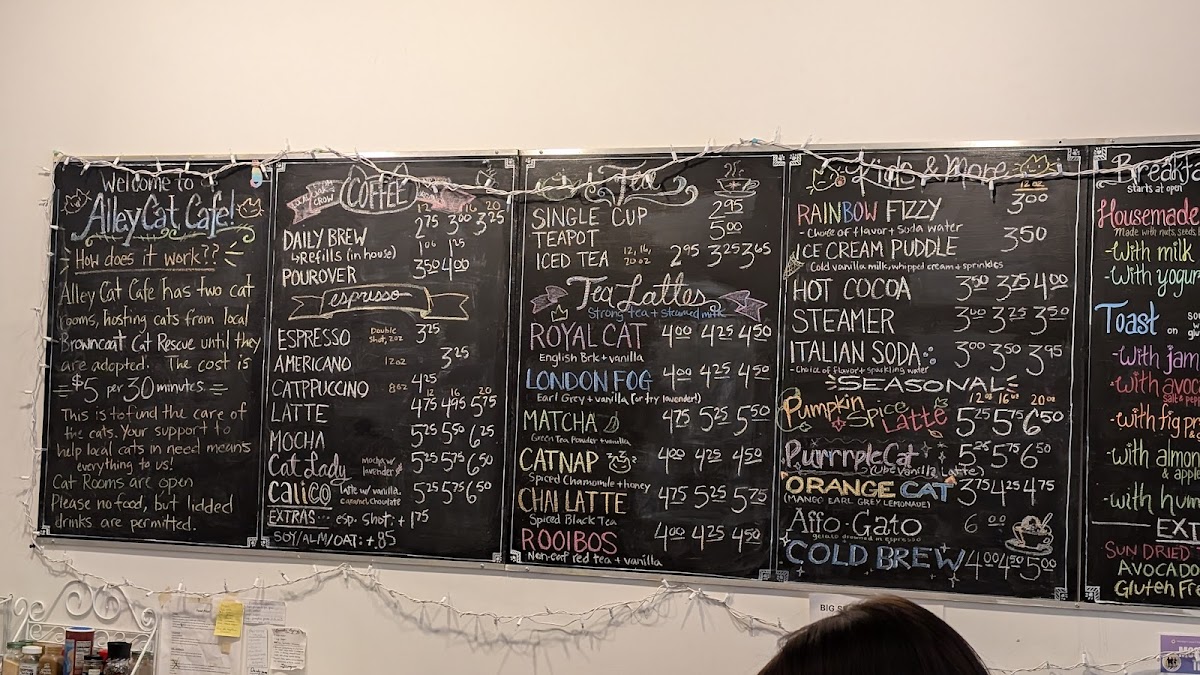 Welcome to
Alley Cat Cafe!
How does it work??
Alley Cat Cafe has two cat
rooms, hosting cats from local
Browncoat Cat Rescue until they
are adopted. The cost is
= $5 per 30 minutes. =
This is to fund the care of
the cats. Your support to
help local cats in need means
everything to us!
Cat Rooms are open
Please no food, but lidded
drinks are permitted.
COFFEE
12 16 20
2.75 3.00 3.25
DAILY BREW
↳Refills (in house) 1.06 1.25
POUROVER 3.50 4.00
espresso
ESPRESSO Double Shot, 2oz 3.25
AMERICANO 12oz 3.25
CATPPUCCINO 8oz 4.25
12 16 20
LATTE 4.75 4.95 5.75
MOCHA 5.25 5.50 6.25
Cat Lady mocha w/ lavender 5.25 5.75 6.50
CALICO latte w/ vanilla, caramel, chocolate 5.25 5.75 6.50
EXTRAS... esp. shot: +1.75
SOY/ALM/OAT: +.85
Tea
SINGLE CUP 2.95
TEAPOT 5.00
ICED TEA 12, 16, 20oz 2.95 3.25 3.65
Tea Lattes
Strong tea + steamed milk
ROYAL CAT 4.00 4.25 4.50
English Brk + vanilla
LONDON FOG 4.00 4.25 4.50
Earl Grey + vanilla (or try lavender!)
MATCHA 4.75 5.25 5.50
Green Tea Powder + vanilla
CATNAP 4.00 4.25 4.50
Spiced Chamomile + honey
CHAI LATTE 4.75 5.25 5.75
Spiced Black Tea
ROOIBOS 4.00 4.25 4.50
Non-caf red tea + vanilla
Kids & More
12oz
RAINBOW FIZZY 3.00
- Choice of flavor + Soda water
ICE CREAM PUDDLE 3.50
Cold vanilla milk, whipped cream + sprinkles
HOT COCOA 3.50 3.75 4.00
STEAMER 3.00 3.25 3.50
ITALIAN SODA 3.00 3.50 3.95
- Choice of flavor + sparkling water
SEASONAL
12oz 16oz 20oz
Pumpkin Spice Latte 5.25 5.75 6.50
PurrrpleCat 5.25 5.75 6.50
(Ube Vanilla Latte)
ORANGE CAT 3.75 4.25 4.75
(MANGO EARL GREY LEMONADE)
Affo-Gato 6.00
gelato drowned in espresso
COLD BREW 4.00 4.50 5.00
Breakfa
starts at open
Housemade
Made with nuts, seeds,
-with milk
-with yogur
Toast
on
-with jam
-with avoc
salt & pepp
-with fig pr
-with almon
& app
-with hum
EXT
SUN DRIED
AVOCADO
Gluten Fre
BIG S